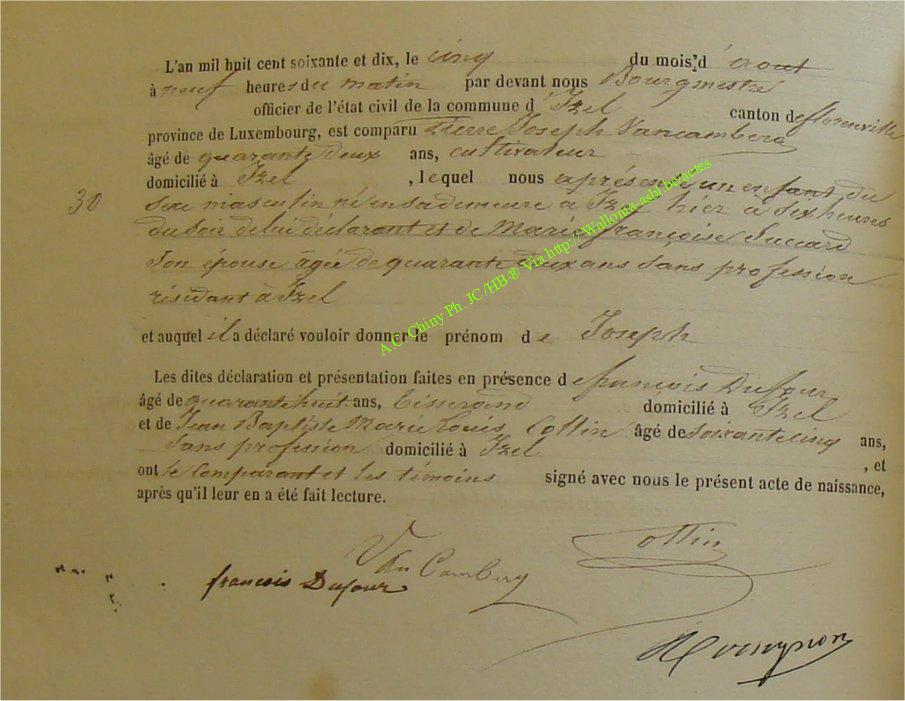 L'an mil huit cent soixante et dix, le cinq du mois d'aout
à neuf heures du matin par devant nous Bourgmestre
officier de l'état civil de la commune d'Izel canton de florenville
province de Luxembourg, est comparu Pierre Joseph Vancamberg
âgé de quarante deux ans, cultivateur
domicilié à Izel, lequel nous a présenté un enfant du
30
sexe masculin né en sa demeure à Izel hier à six heures
du soir de lui déclarant et de Marie françoise Suzard
son épouse agée de quarante deux ans sans profession
résidant à Izel
et auquel il a déclaré vouloir donner le prénom de Joseph
Les dites déclaration et présentation faites en présence de françois Dufour
âgé de quarante huit ans, Tisserand domicilié à Izel
et de Jean Baptiste Marie Louis Collin âgé de soixante cinq ans,
sans profession domicilié à Izel, et
ont le comparant et les témoins signé avec nous le présent acte de naissance,
après qu'il leur en a été fait lecture.
Collin
Van Camberg
françois Dufour
A.C. Chiny Ph. JC /HB® Via http:// Wallonia-asbl.be/actes